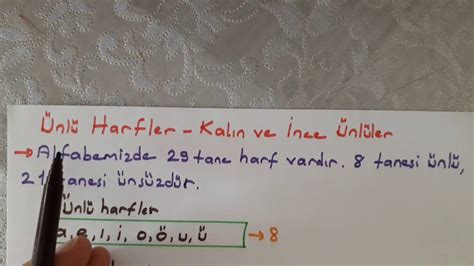 Ünlü Harfler - Kalın ve İnce Ünlüler
→ Alfabemizde 29 tane harf vardır. 8 tanesi ünlü,
21 tanesi ünsüzdür.
Ünlü harfler
a, e, ı, i, o, ö, u, ü → 8